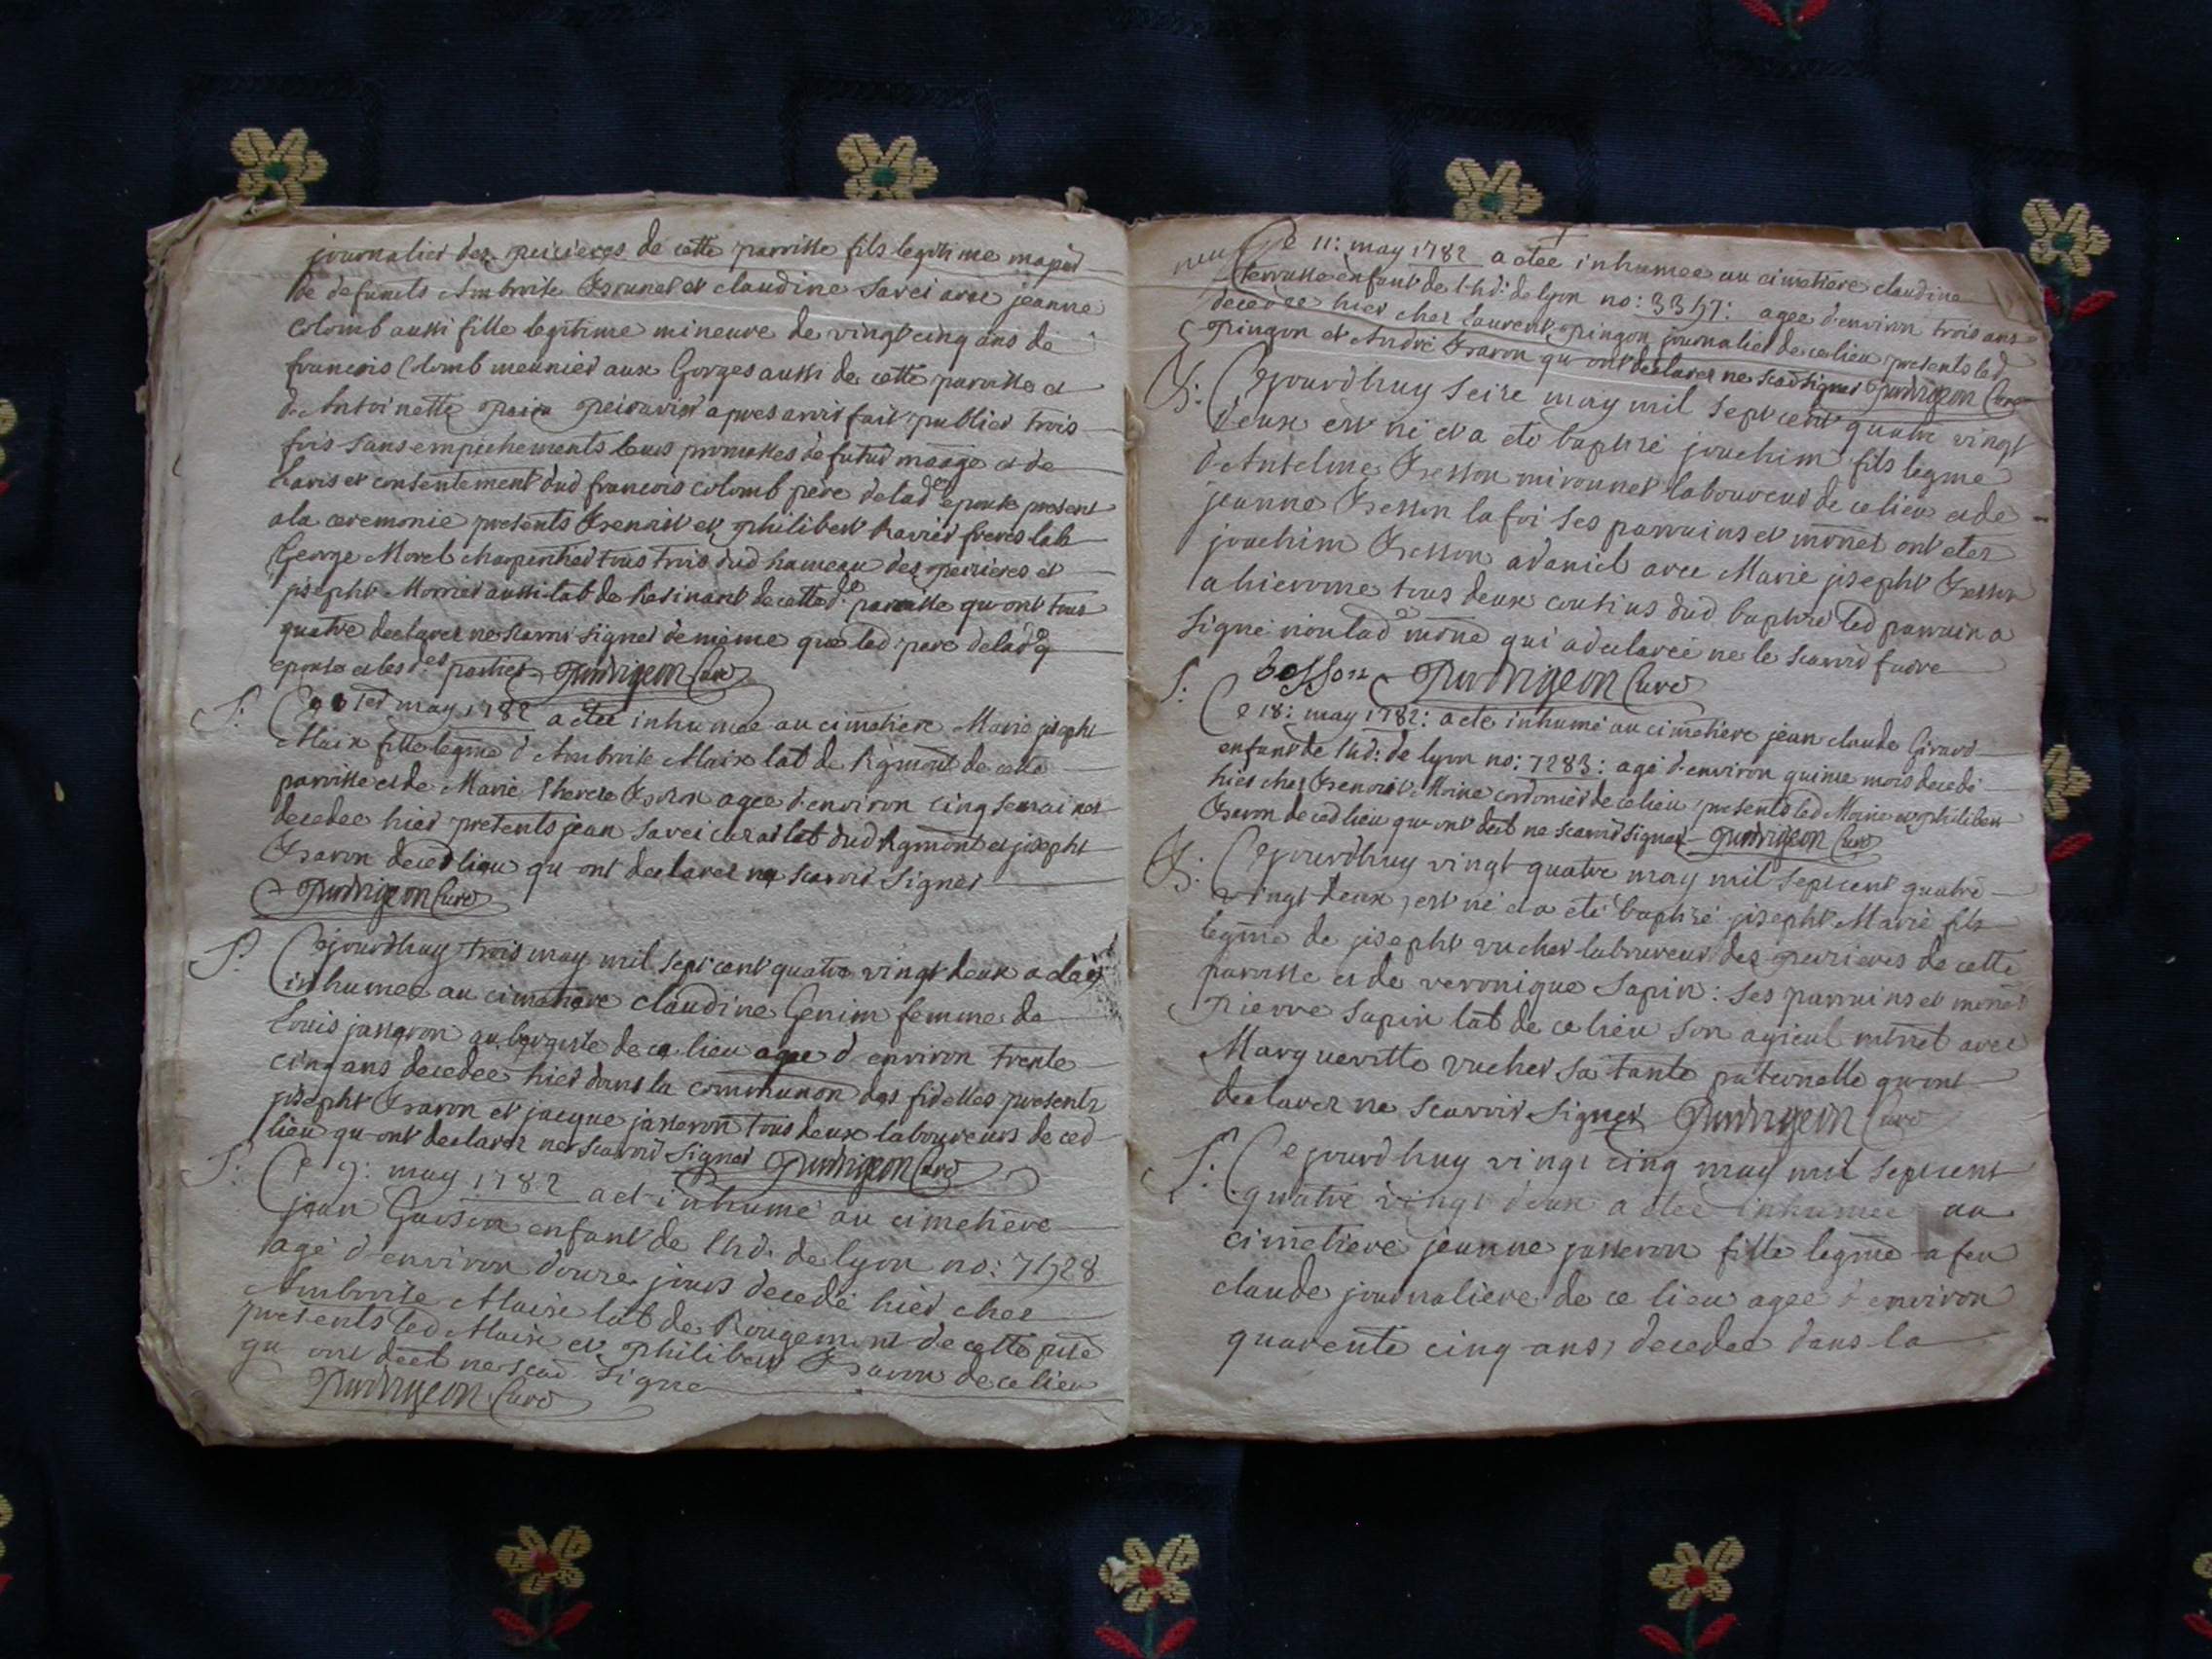 journalier des peirieres de cette parroisse fils legitime majeur
de defuncts Ambroise Brunet et claudine Savei avec jeanne
Colomb aussi fille legitime mineure de vingt cinq ans de
francois Colomb meunier aux Gorges aussi de cette paroisse et
d'Antoinette apres avoir fait publier trois
fois sans empechements leurs promesses de futur maage et de
lavis et consentement dud francois colomb père delad epouse present
ala ceremonie presents Benoist et philibert Ravier freres lab
George Morel charpentier tous trois dud hameau des peirieres et
joseph Morrier aussi lab de Resinant decetted. paroisse qu ont tous
quatre declarer ne scavoir signer de même que led pere delad
epouse et les des parties curé
S: Ce 1er may 1782 a étée inhumée au cimetiere Marie joseph
Maix fille legme d'Ambroise Maix lab de Rgmont de cette
parroisse et de Marie therese Bolon agee d'environ cinq semaines
decedee hier presents jean Savei lab dud Rgmont et joseph
Baron deced lieu qu ont declarer ne scavoir signer
curé
S. Cejourdhuy trois may mil sept cent quatre vingt deux a étée
inhumee au cimetiere claudine Genim femme de
Louis jasseron aubergiste de ce lieu agee d'environ trente
cinq ans decedee hier dans la communion des fidelles presents
joseph Baron et jacque jasseron tous deux laboureurs de ced
lieu qu ont declarer ne scavoir signer curé
S: Ce 9: may 1782 a eté inhumé au cimetière
jean enfant de lhd. de lyon no: 7528
agé d'environ douze jours decedé hier chez
Ambroise Maix lab de Rougemont de cette psse
presents led Maix et philibert Baron de ce lieu
qu ont declt ne scav signe
curé
Ce 11: may 1782 a étée inhumee au cimetiere claudine
enfant de lhd: de lyon no: 3357: agee d'environ trois ans
decedee hier chez laurent pingon journalier de ce lieu presents led
pingon et André Baron qu ont declarer ne scav signer curé
B: Cejourdhuy seize may mil sept cent quatre vingt
deux est né et a eté baptizé joachim fils legme
d'Antelme Besson mironnet laboureur de ce lieu et de
jeanne Besson lafoi ses parrains et mōnes ont etez
joachim Besson adaniel avec Marie joseph Besson
ahierome tous deux cousins dud baptizé led parrain a
signé non lad mône qui a declareé ne le scavoir faire
besson curé
S: Ce 18: may 1782: a eté inhumé au cimetiere jean claude Girard
enfant de lhd: de lyon no: 7283: agé d'environ quinze mois decedé
hier chez Benoist Moine cordonnier de ce lieu presents led Moine et philibert
Baron de ced lieu qu ont declt ne scavoir signer curé
B: Cejourdhuy vingt quatre may mil sept cent quatre
vingt deux, est né et a eté baptizé joseph Marie fils
legme de joseph vucher laboureur des peirieres de cette
paroisse et de veronique Sapin: ses parrains et mōnes
pierre Sapin lab de ce lieu son ayieul mtnel avec
Margueritte vucher sa tante paternelle qu ont
declarer ne scavoir signer curé
S: Ce jourdhuy vingt cinq may mil sept cent
quatre vingt deux a étée inhumee au
cimetiere jeanne jasseron fille legme a feu
claude journaliere de ce lieu agée d'environ
quarente cinq ans, decedee dans la